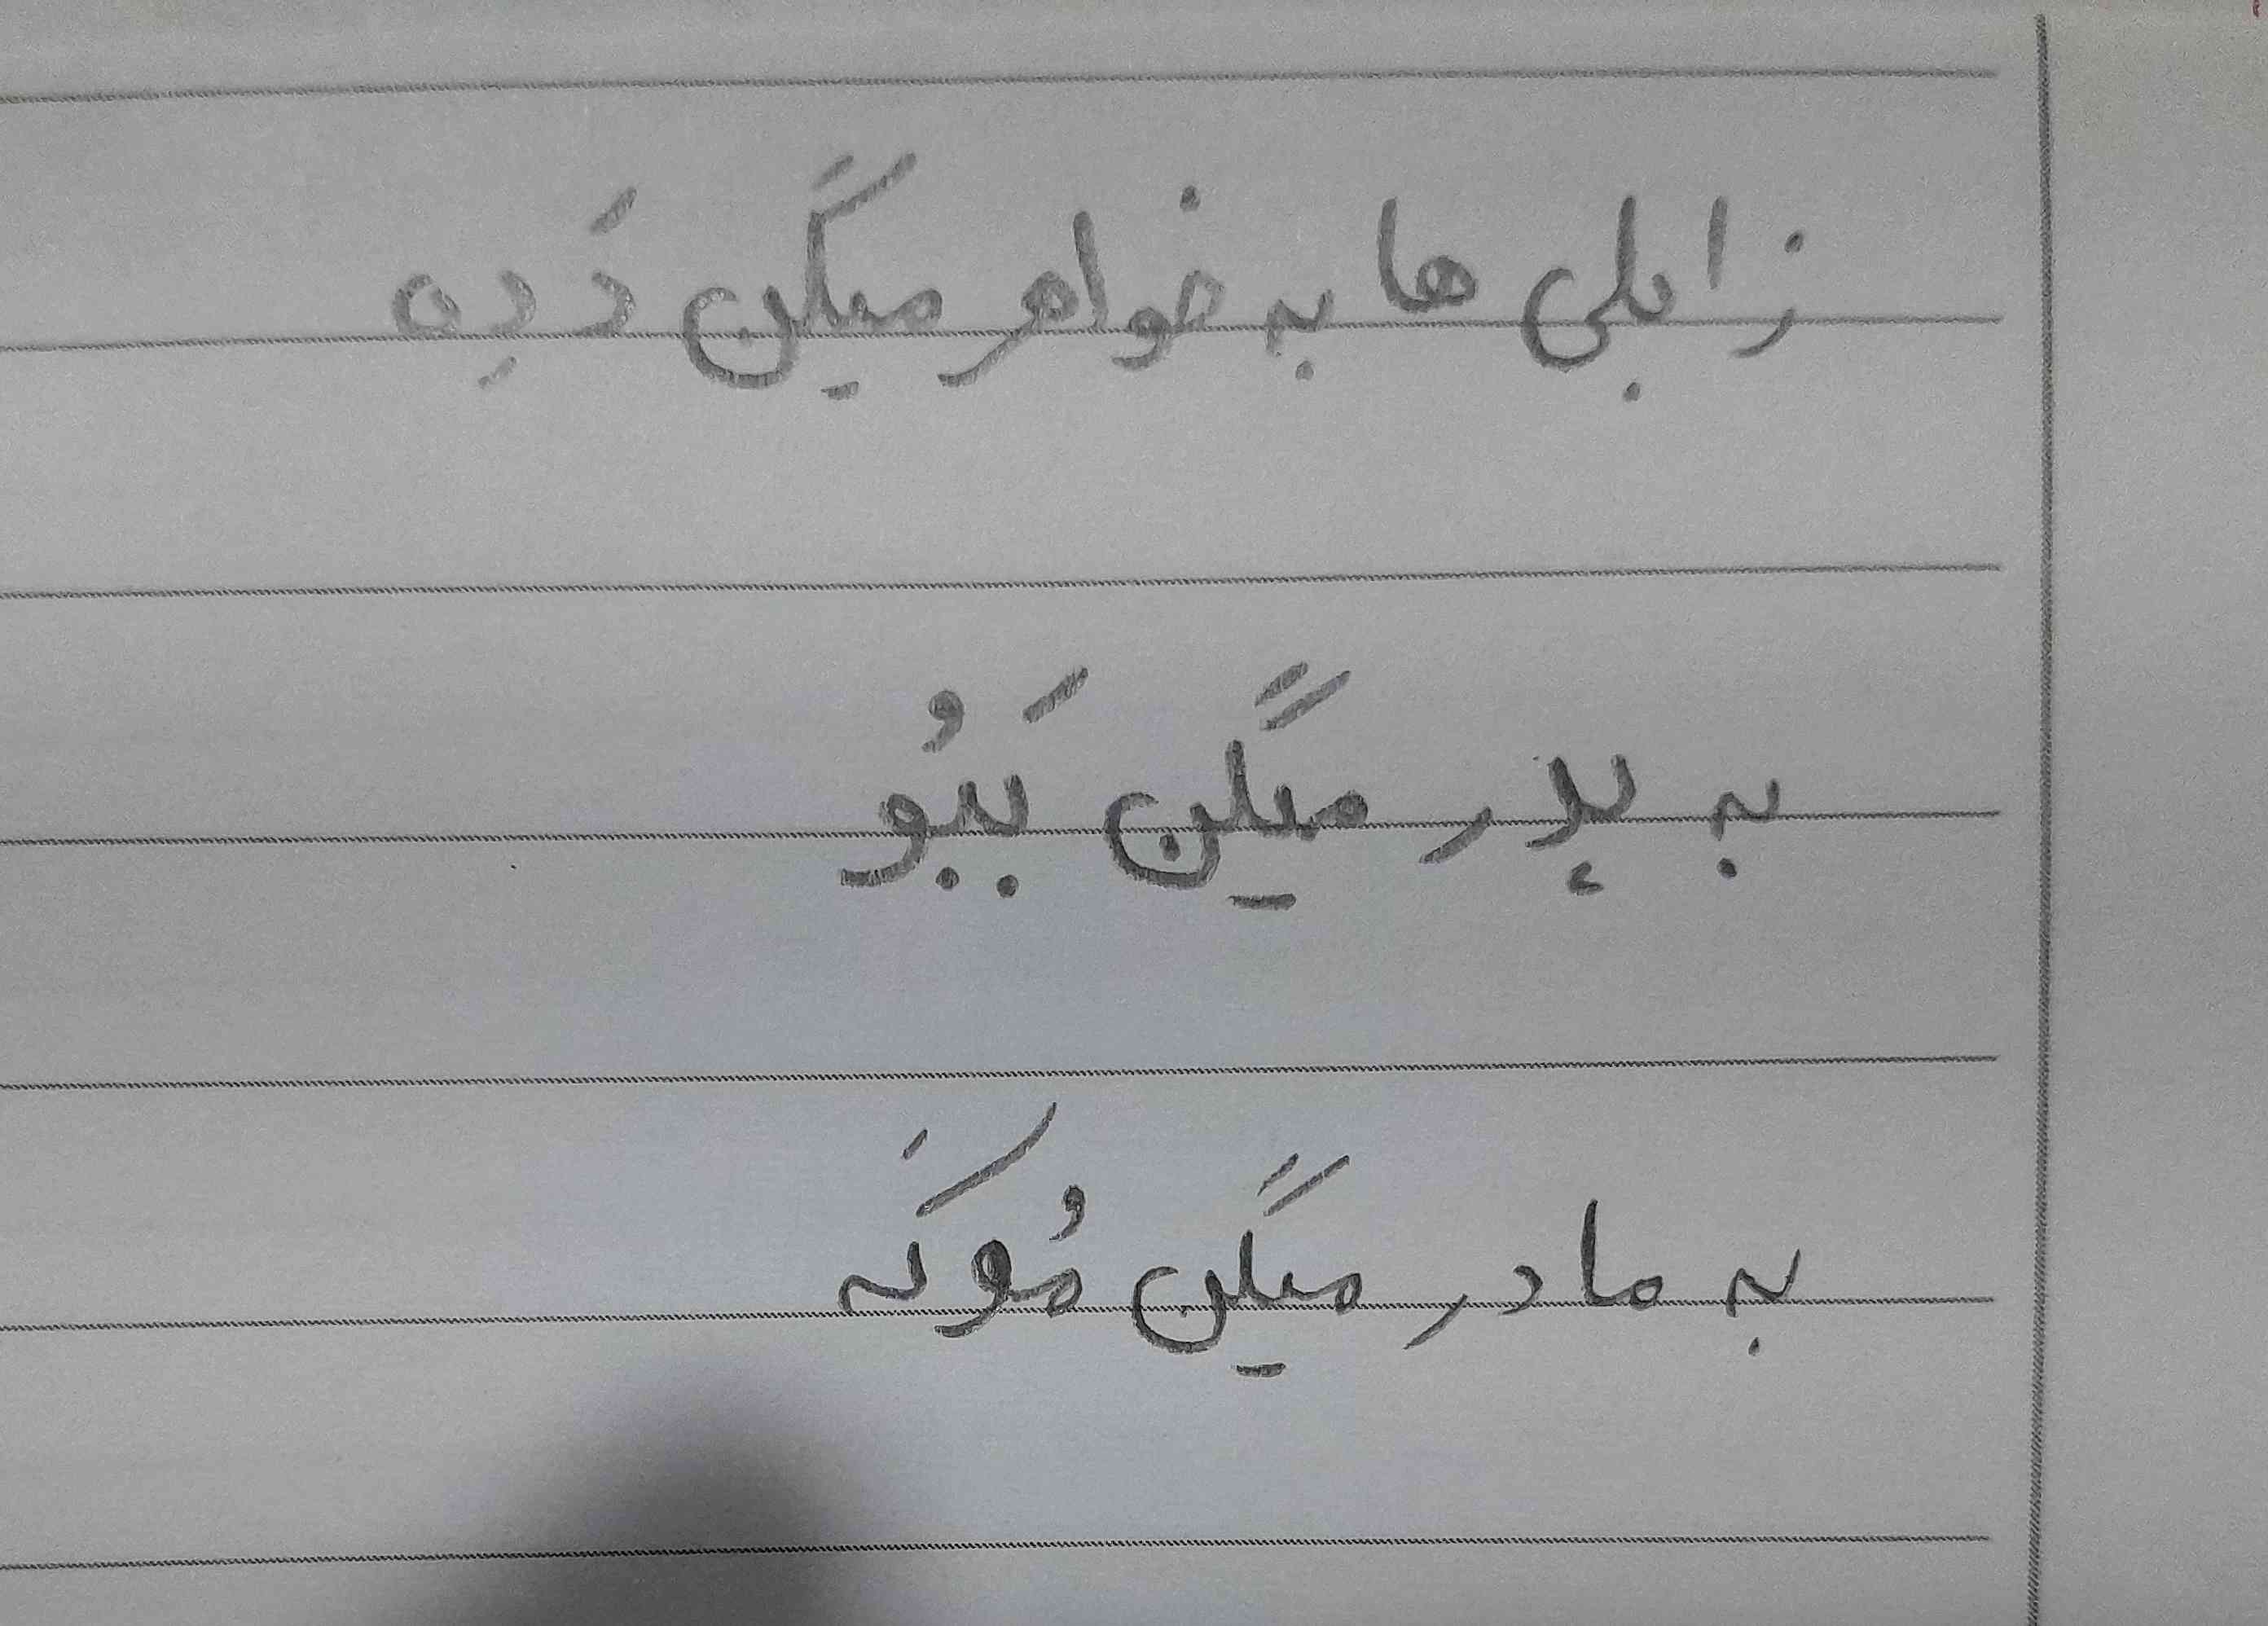 زابلی ها به خواهر میگن دَدِه
به پدر میگن بَبُو
به مادر میگن مُونَه